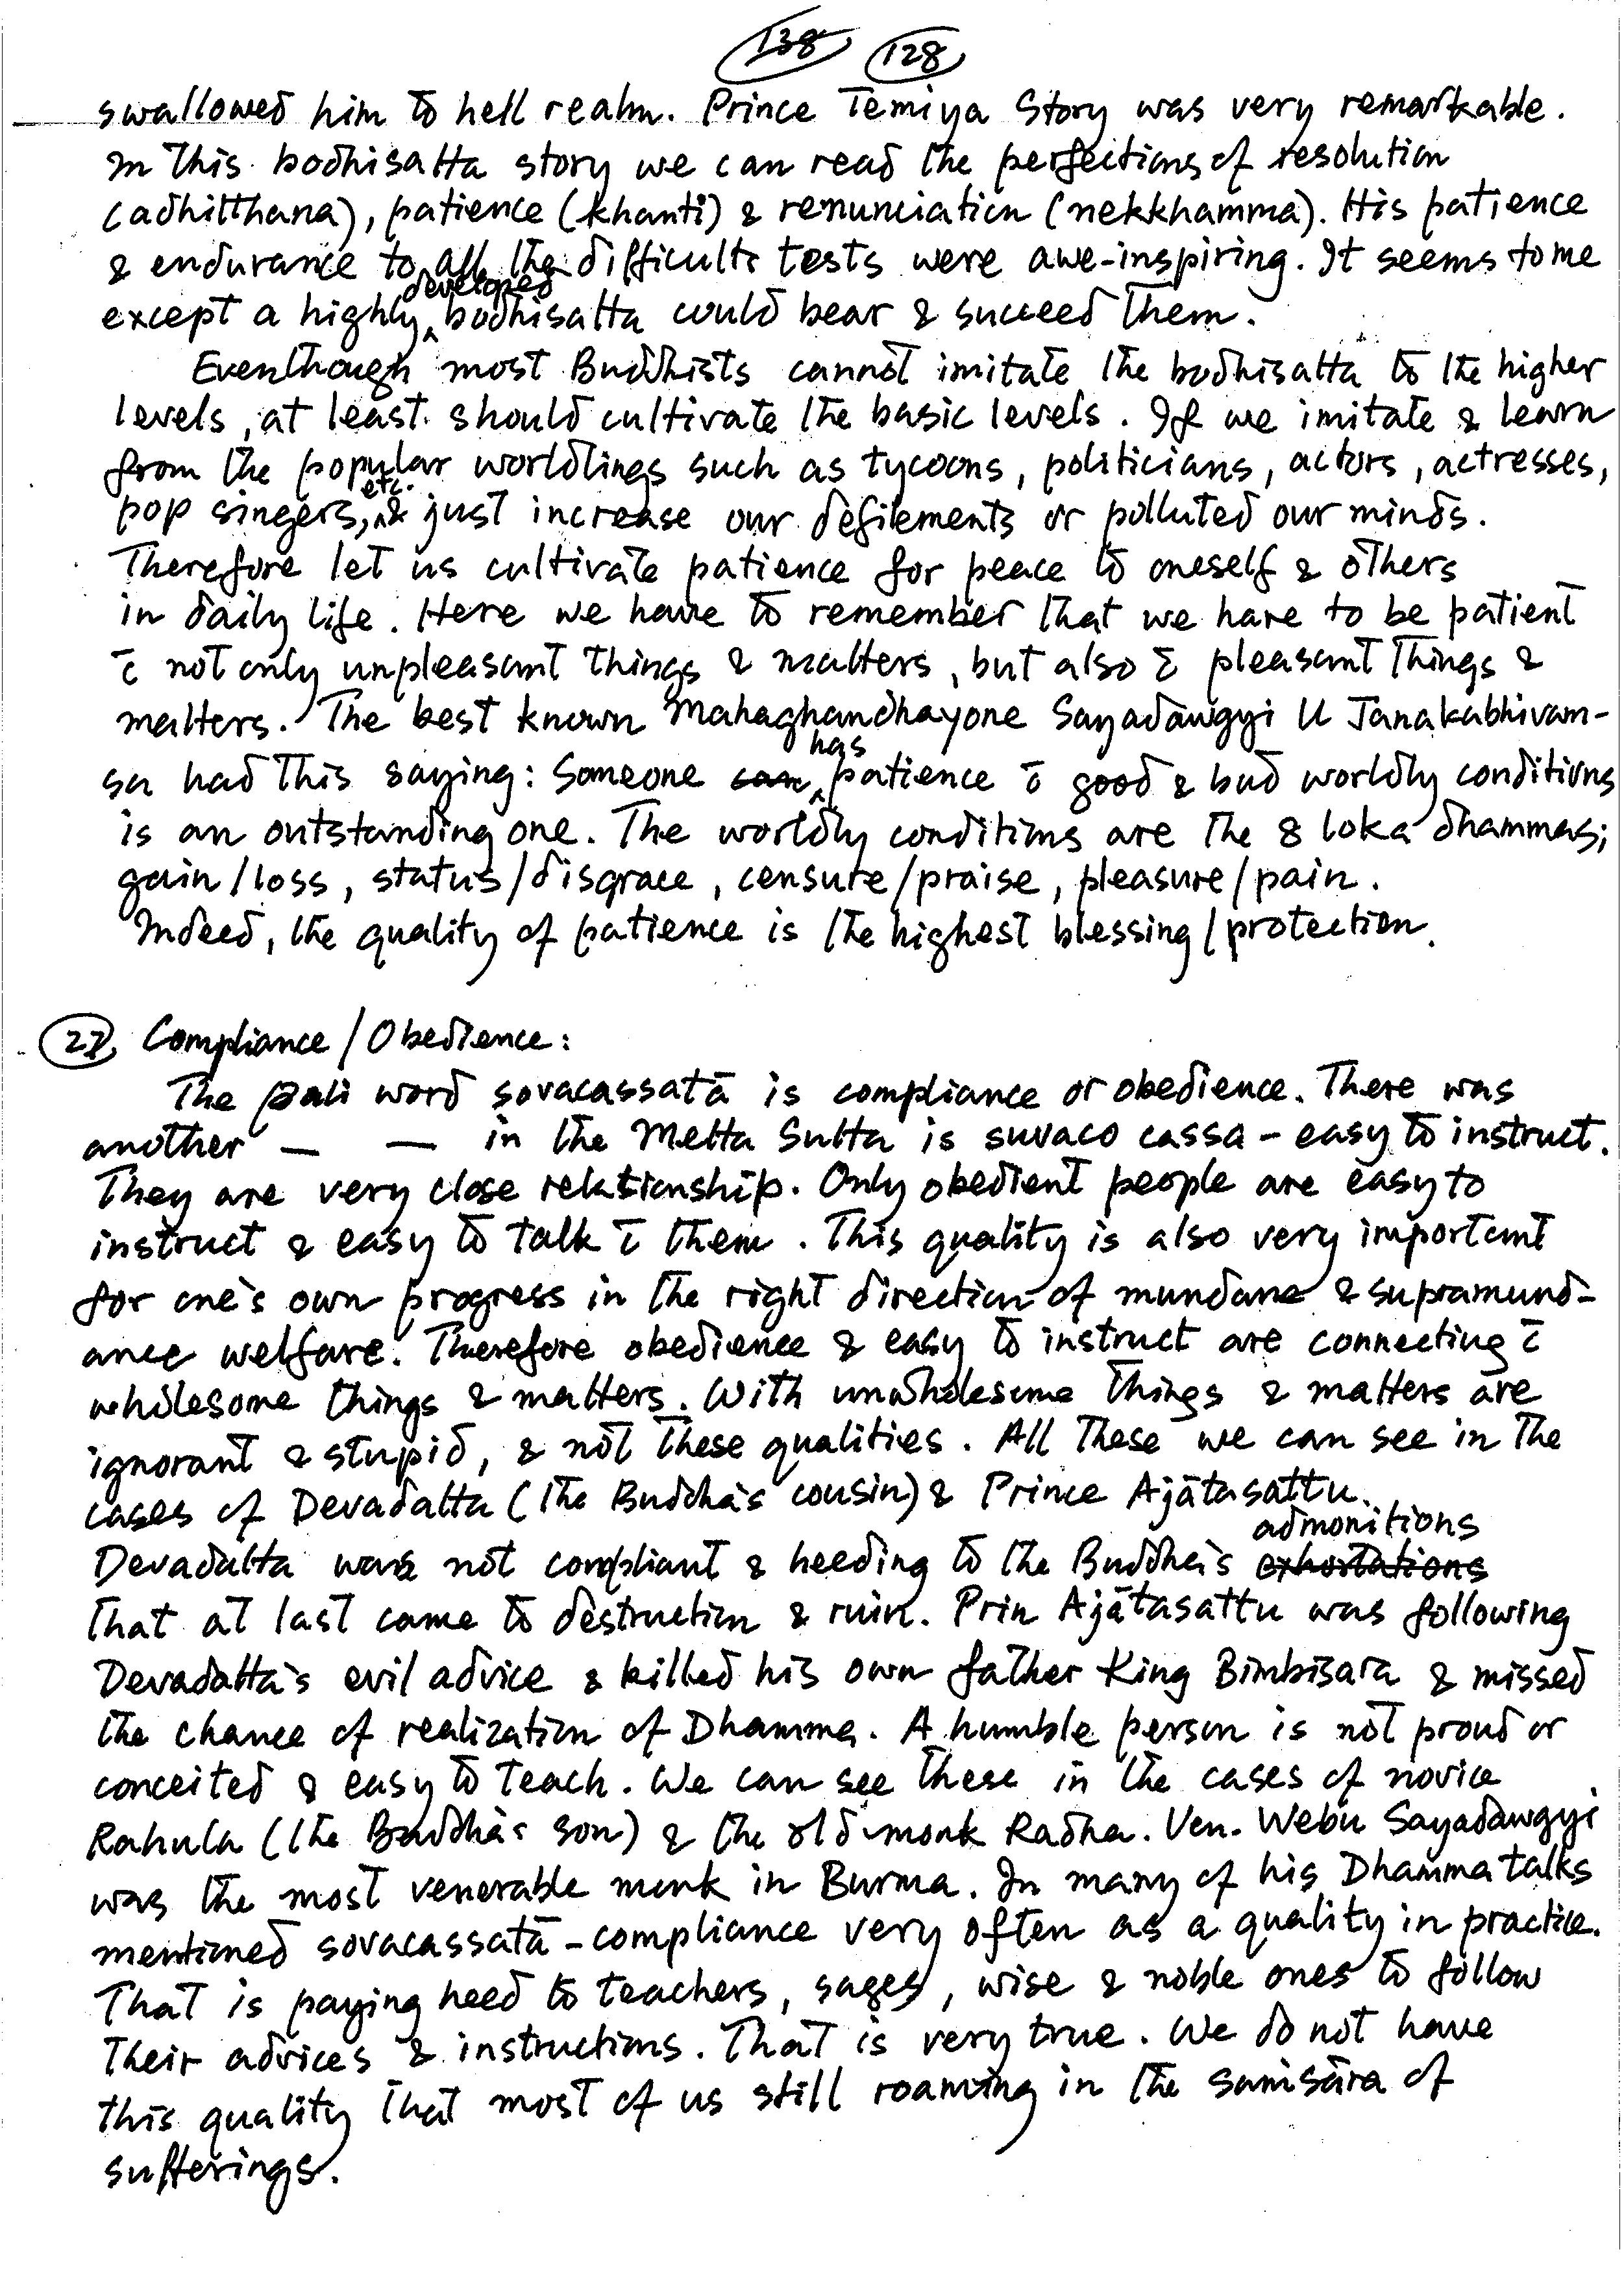 138 128
swallowed him to hell realm. Prince Temiya Story was very remarkable.
In this bodhisatta story we can read the perfections of resolution
(adhitthana), patience (khanti) & renunciation (nekkhamma). His patience
& endurance to all the difficults tests were awe-inspiring. It seems to me
except a highly developed bodhisatta could bear & succeed them.
Eventhough most Buddhists cannot imitate the bodhisatta to the higher
levels, at least should cultivate the basic levels. If we imitate & learn
from the popular worldlings such as tycoons, politicians, actors, actresses,
pop singers, etc. & just increase our defilements or polluted our minds.
Therefore let us cultivate patience for peace to oneself & others
in daily life. Here we have to remember that we have to be patient
c̄ not only unpleasant things & matters, but also c̄ pleasant things &
matters. The best known Mahaghandhayone Sayadawgyi U Janakabhivam-
sa had this saying: Someone has patience c̄ good & bad worldly conditions
is an outstanding one. The worldly conditions are the 8 loka dhammas;
gain/loss, status/disgrace, censure/praise, pleasure/pain.
Indeed, the quality of patience is the highest blessing/protection.
27, Compliance/Obedience:
The pali word sovacassatā is compliance or obedience. There was
another — — in the Metta Sutta is suvaco cassa - easy to instruct.
They are very close relationship. Only obedient people are easy to
instruct & easy to talk c̄ them. This quality is also very important
for one's own progress in the right direction of mundane & supramund-
ance welfare. Therefore obedience & easy to instruct are connecting c̄
wholesome things & matters. With unwholesome things & matters are
ignorant & stupid, & not these qualities. All these we can see in the
cases of Devadatta (the Buddha's cousin) & Prince Ajātasattu.
Devadatta was not compliant & heeding to the Buddha's admonitions exhortations
that at last came to destruction & ruin. Prin Ajātasattu was following
Devadatta's evil advice & killed his own father King Bimbisara & missed
the chance of realization of Dhamma. A humble person is not proud or
conceited & easy to teach. We can see these in the cases of novice
Rahula (the Buddha's son) & the old monk Radha. Ven. Webu Sayadawgyi
was the most venerable monk in Burma. In many of his Dhamma talks
mentioned sovacassatā - compliance very often as a quality in practice.
That is paying heed to teachers, sages, wise & noble ones to follow
their advices & instructions. That is very true. We do not have
this quality that most of us still roaming in the saṁsāra of
sufferings.